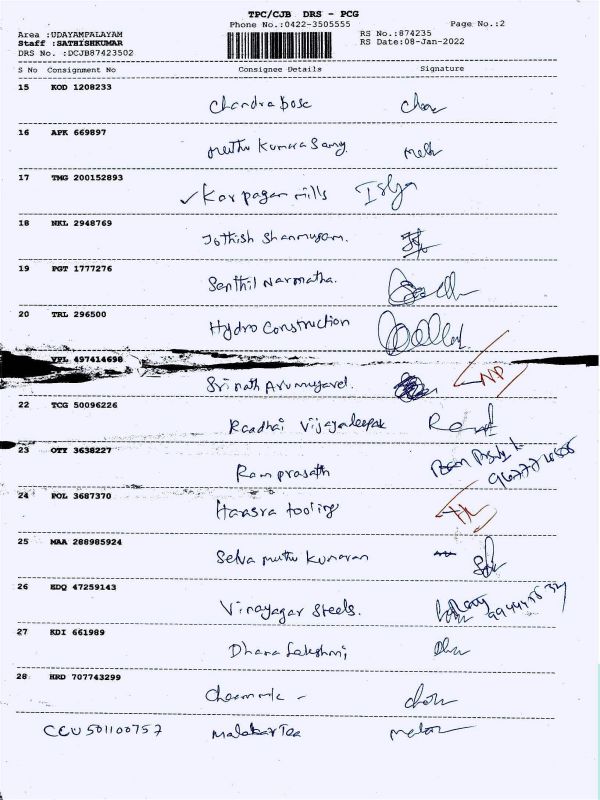 TPC/CJB DRS - PCG
Phone No.:0422-3505555 Page No.:2
Area :UDAYAMPALAYAM RS No.:874235
Staff :SATHISHKUMAR RS Date:08-Jan-2022
DRS No. :DCJB87423502
S No Consignment No Consignee Details Signature
15 KOD 1208233
Chandra bose
16 APK 669897
muthu Kumara Samy
17 TMG 200152893
✓ Karpagam mills
18 NKL 2948769
Jothish Shanmugam.
19 PGT 1777276
Senthil Narmatha.
20 TRL 296500
Hydro Construction
VPL 497414698
Srinath Arumugavel. NP
22 TCG 50096226
Raadhai Vijayadeepak
23 OTY 3638227
Ram prasath
24 POL 3687370
Haasra tooling
25 MAA 288985924
Selva muthu kumaran
26 EDQ 47259143
Vinayagar Steels.
27 KDI 661989
Dhana Lakshmi
28 HRD 707743299
CCU 501100757 Malabar Tea